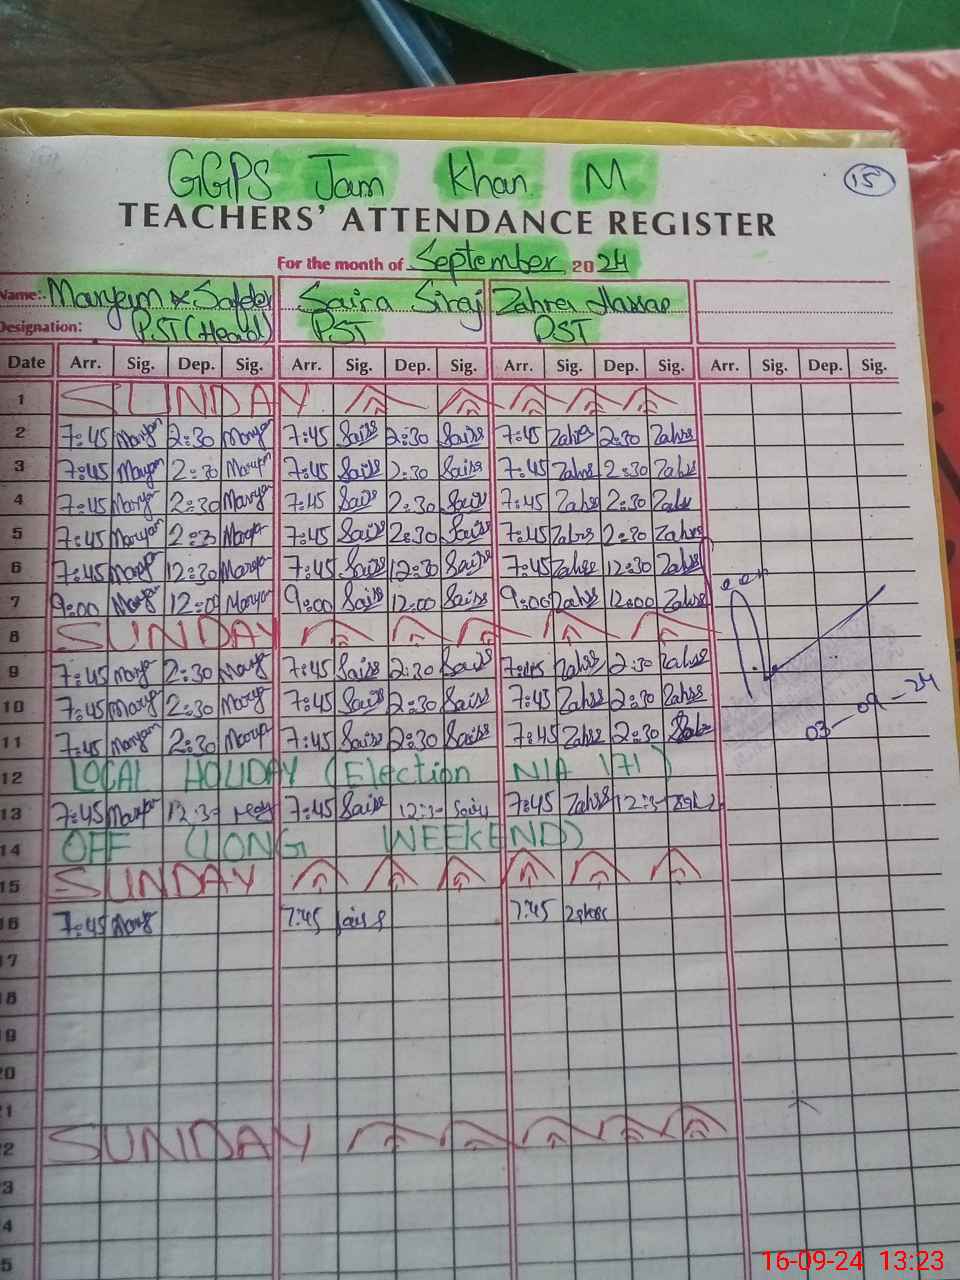 GGPS Jam Khan M
15
TEACHERS' ATTENDANCE REGISTER
For the month of September 2024
Name:- Maryam Safdar Saira Siraj Zahra
Designation: PST (Head) PST PST
Date Arr. Sig. Dep. Sig. Arr. Sig. Dep. Sig. Arr. Sig. Dep. Sig. Arr. Sig. Dep. Sig.
1 SUNDAY
2 7:45 Maryam 2:30 Maryam 7:45 Saira 2:30 Saira 7:45 Zahra 2:30 Zahra
3 7:45 Maryam 2:30 Maryam 7:45 Saira 2:30 Saira 7:45 Zahra 2:30 Zahra
4 7:45 Maryam 2:30 Maryam 7:45 Saira 2:30 Saira 7:45 Zahra 2:30 Zahra
5 7:45 Maryam 2:3 Maryam 7:45 Saira 2:30 Saira 7:45 Zahra 2:30 Zahra
6 7:45 Maryam 12:30 Maryam 7:45 Saira 12:30 Saira 7:45 Zahra 12:30 Zahra
7 9:00 Maryam 12:00 Maryam 9:00 Saira 12:00 Saira 9:00 Zahra 12:00 Zahra
8 SUNDAY
9 7:45 Marya 2:30 Marya 7:45 Saira 2:30 Saira 7:45 Zahra 2:30 Zahra
10 7:45 Marya 2:30 Marya 7:45 Saira 2:30 Saira 7:45 Zahra 2:30 Zahra
03-09-24
11 7:45 Maryam 2:30 Marya 7:45 Saira 2:30 Saira 7:45 Zahra 2:30
12 LOCAL HOLIDAY (Election NA 171)
13 7:45 Marya 12:3 7:45 Saira 12:3 7:45 Zahra 12:3
14 OFF (LONG WEEKEND)
15 SUNDAY
16 7:45 Marya 7:45 Saira 7:45 Zahra
17
18
19
20
21
2 SUNDAY
3
4
5
16-09-24 13:23